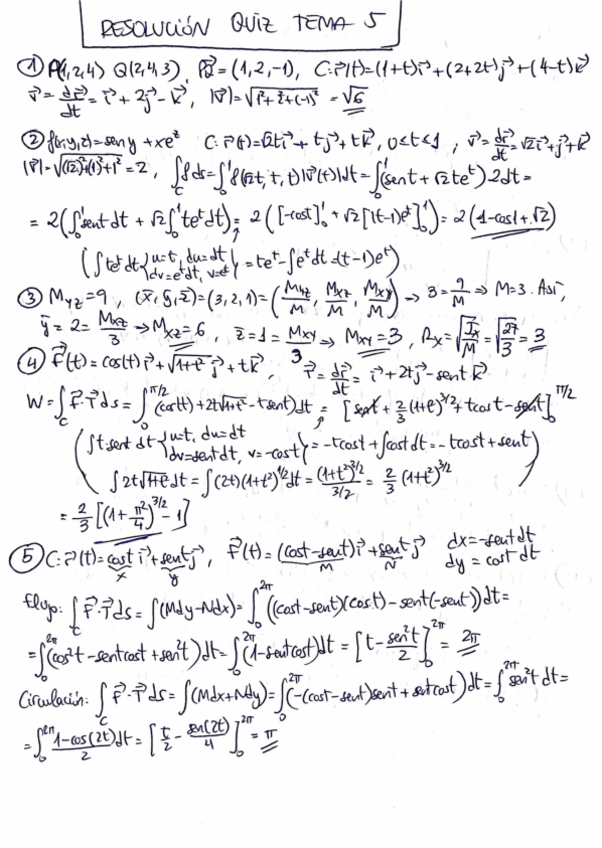 RESOLUCIÓN QUIZ TEMA 5
① P(1,2,4) Q(2,4,3), PQ⃗ = (1,2,-1), C: r⃗(t)=(1+t)i⃗+(2+2t)j⃗+(4-t)k⃗
v⃗ = dr⃗/dt = i⃗ + 2j⃗ - k⃗, |v⃗| = √(1²+2²+(-1)²) = √6
② f(x,y,z)=sen y + xe^z C: r⃗(t)=√2t i⃗ + t j⃗ + t k⃗, 0≤t≤1, v⃗ = dr⃗/dt = √2 i⃗ + j⃗ + k⃗
|v⃗| = √((√2)²+(1)²+1²) = 2, ∫_C f ds = ∫₀¹ f(√2t, t, t)|v⃗(t)|dt = ∫₀¹ (sent + √2 te^t) 2dt =
= 2(∫₀¹ sent dt + √2 ∫₀¹ te^t dt) = 2([-cost]₀¹ + √2 [(t-1)e^t]₀¹) = 2(1-cos1+√2)
(∫te^t dt {u=t, du=dt dv=e^t dt, v=e^t} = te^t - ∫e^t dt = (t-1)e^t)
③ M_YZ = 9, (x̄, ȳ, z̄) = (3,2,1) = (M_YZ/M, M_XZ/M, M_XY/M) → 3 = 9/M ⇒ M=3. Así,
ȳ = 2 = M_XZ/3 → M_XZ = 6, z̄ = 1 = M_XY/3 → M_XY = 3, R_X = √(I_X/M) = √(27/3) = 3
④ F⃗(t) = cos(t) i⃗ + √(1+t²) j⃗ + t k⃗, T⃗ = dr⃗/dt = i⃗ + 2t j⃗ - sent k⃗
W = ∫_C F⃗·T⃗ ds = ∫₀^(π/2) (cos(t) + 2t√(1+t²) - t sent) dt = [sent + 2/3 (1+t²)^(3/2) + t cost - sent]₀^(π/2)
(∫t·sent dt {u=t, du=dt dv=sent dt, v=-cost} = -tcost + ∫cost dt = -tcost + sent
∫2t√(1+t²) dt = ∫(2t)(1+t²)^(1/2) dt = (1+t²)^(3/2)/(3/2) = 2/3 (1+t²)^(3/2))
= 2/3 [(1 + π²/4)^(3/2) - 1]
⑤ C: r⃗(t) = cost i⃗ + sent j⃗, F⃗(t) = (cost-sent) i⃗ + sent j⃗ dx = -sent dt
x y M N dy = cost dt
Flujo: ∫_C F⃗·T⃗ ds = ∫(Mdy-Ndx) = ∫₀^(2π) ((cost-sent)(cost) - sent(-sent)) dt =
= ∫₀^(2π) (cos²t - sentcost + sen²t) dt = ∫₀^(2π) (1-sentcost) dt = [t - sen²t/2]₀^(2π) = 2π
Circulación: ∫_C F⃗·T⃗ ds = ∫(Mdx+Ndy) = ∫₀^(2π) (-(cost-sent)sent + sentcost) dt = ∫₀^(2π) sen²t dt =
= ∫₀^(2π) (1-cos(2t))/2 dt = [t/2 - sen(2t)/4]₀^(2π) = π